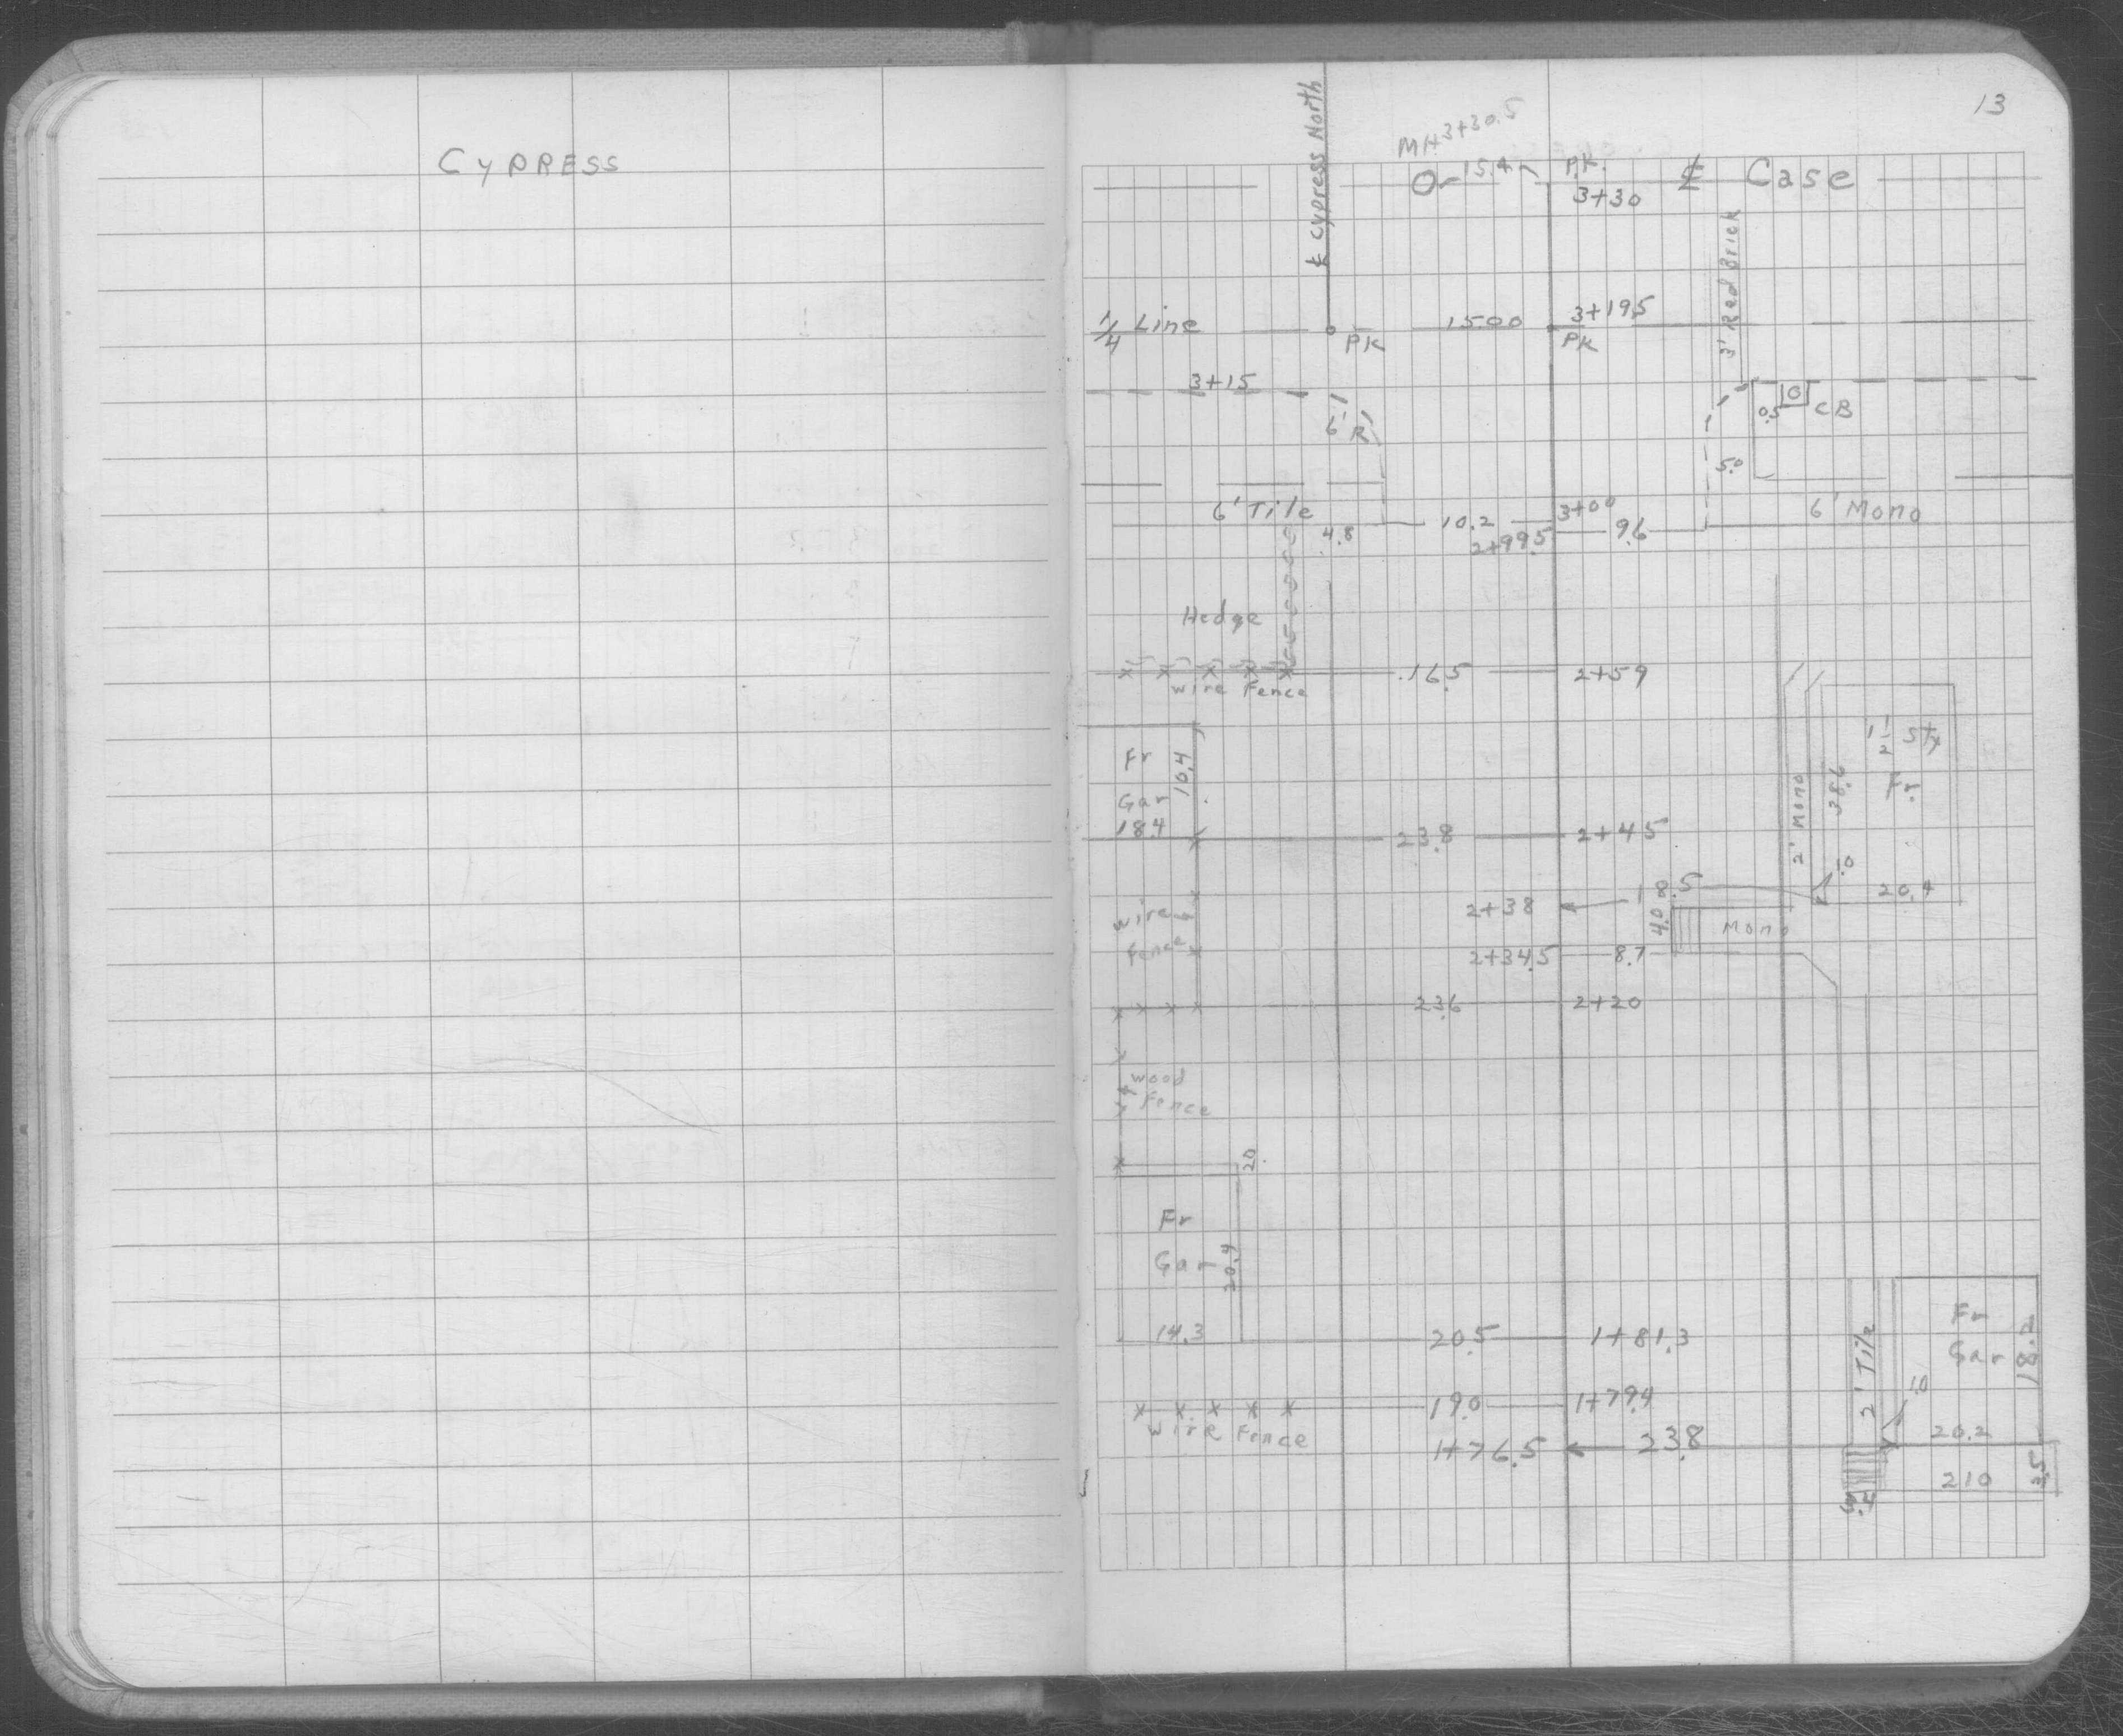 CYPRESS
13
℄ Cypress North
MH 3+30.5
15.4
P.K.
3+30
℄ Case
3' Red Brick
1/4 Line
PK
15.00
3+19.5
PK
3+15
6' R
0.5
CB
5.0
6' Tile
4.8
10.2
3+00
2+99.5
9.6
6' Mono
Hedge
16.5
2+59
Wire Fence
Fr
Gar
10.4
18.4
23.8
2+45
2' Mono
38.6
1 1/2 Sty
Fr.
1.0
20.4
2+38
18.5
4.0
Mono
wire
fence
2+34.5
8.7
23.6
2+20
wood
Fence
20.
Fr
Gar
20.4
14.3
20.5
1+81.3
2' Tile
Fr
Gar
18.2
1.0
20.2
19.0
1+79.4
Wire Fence
1+76.5
23.8
21.0
3.5